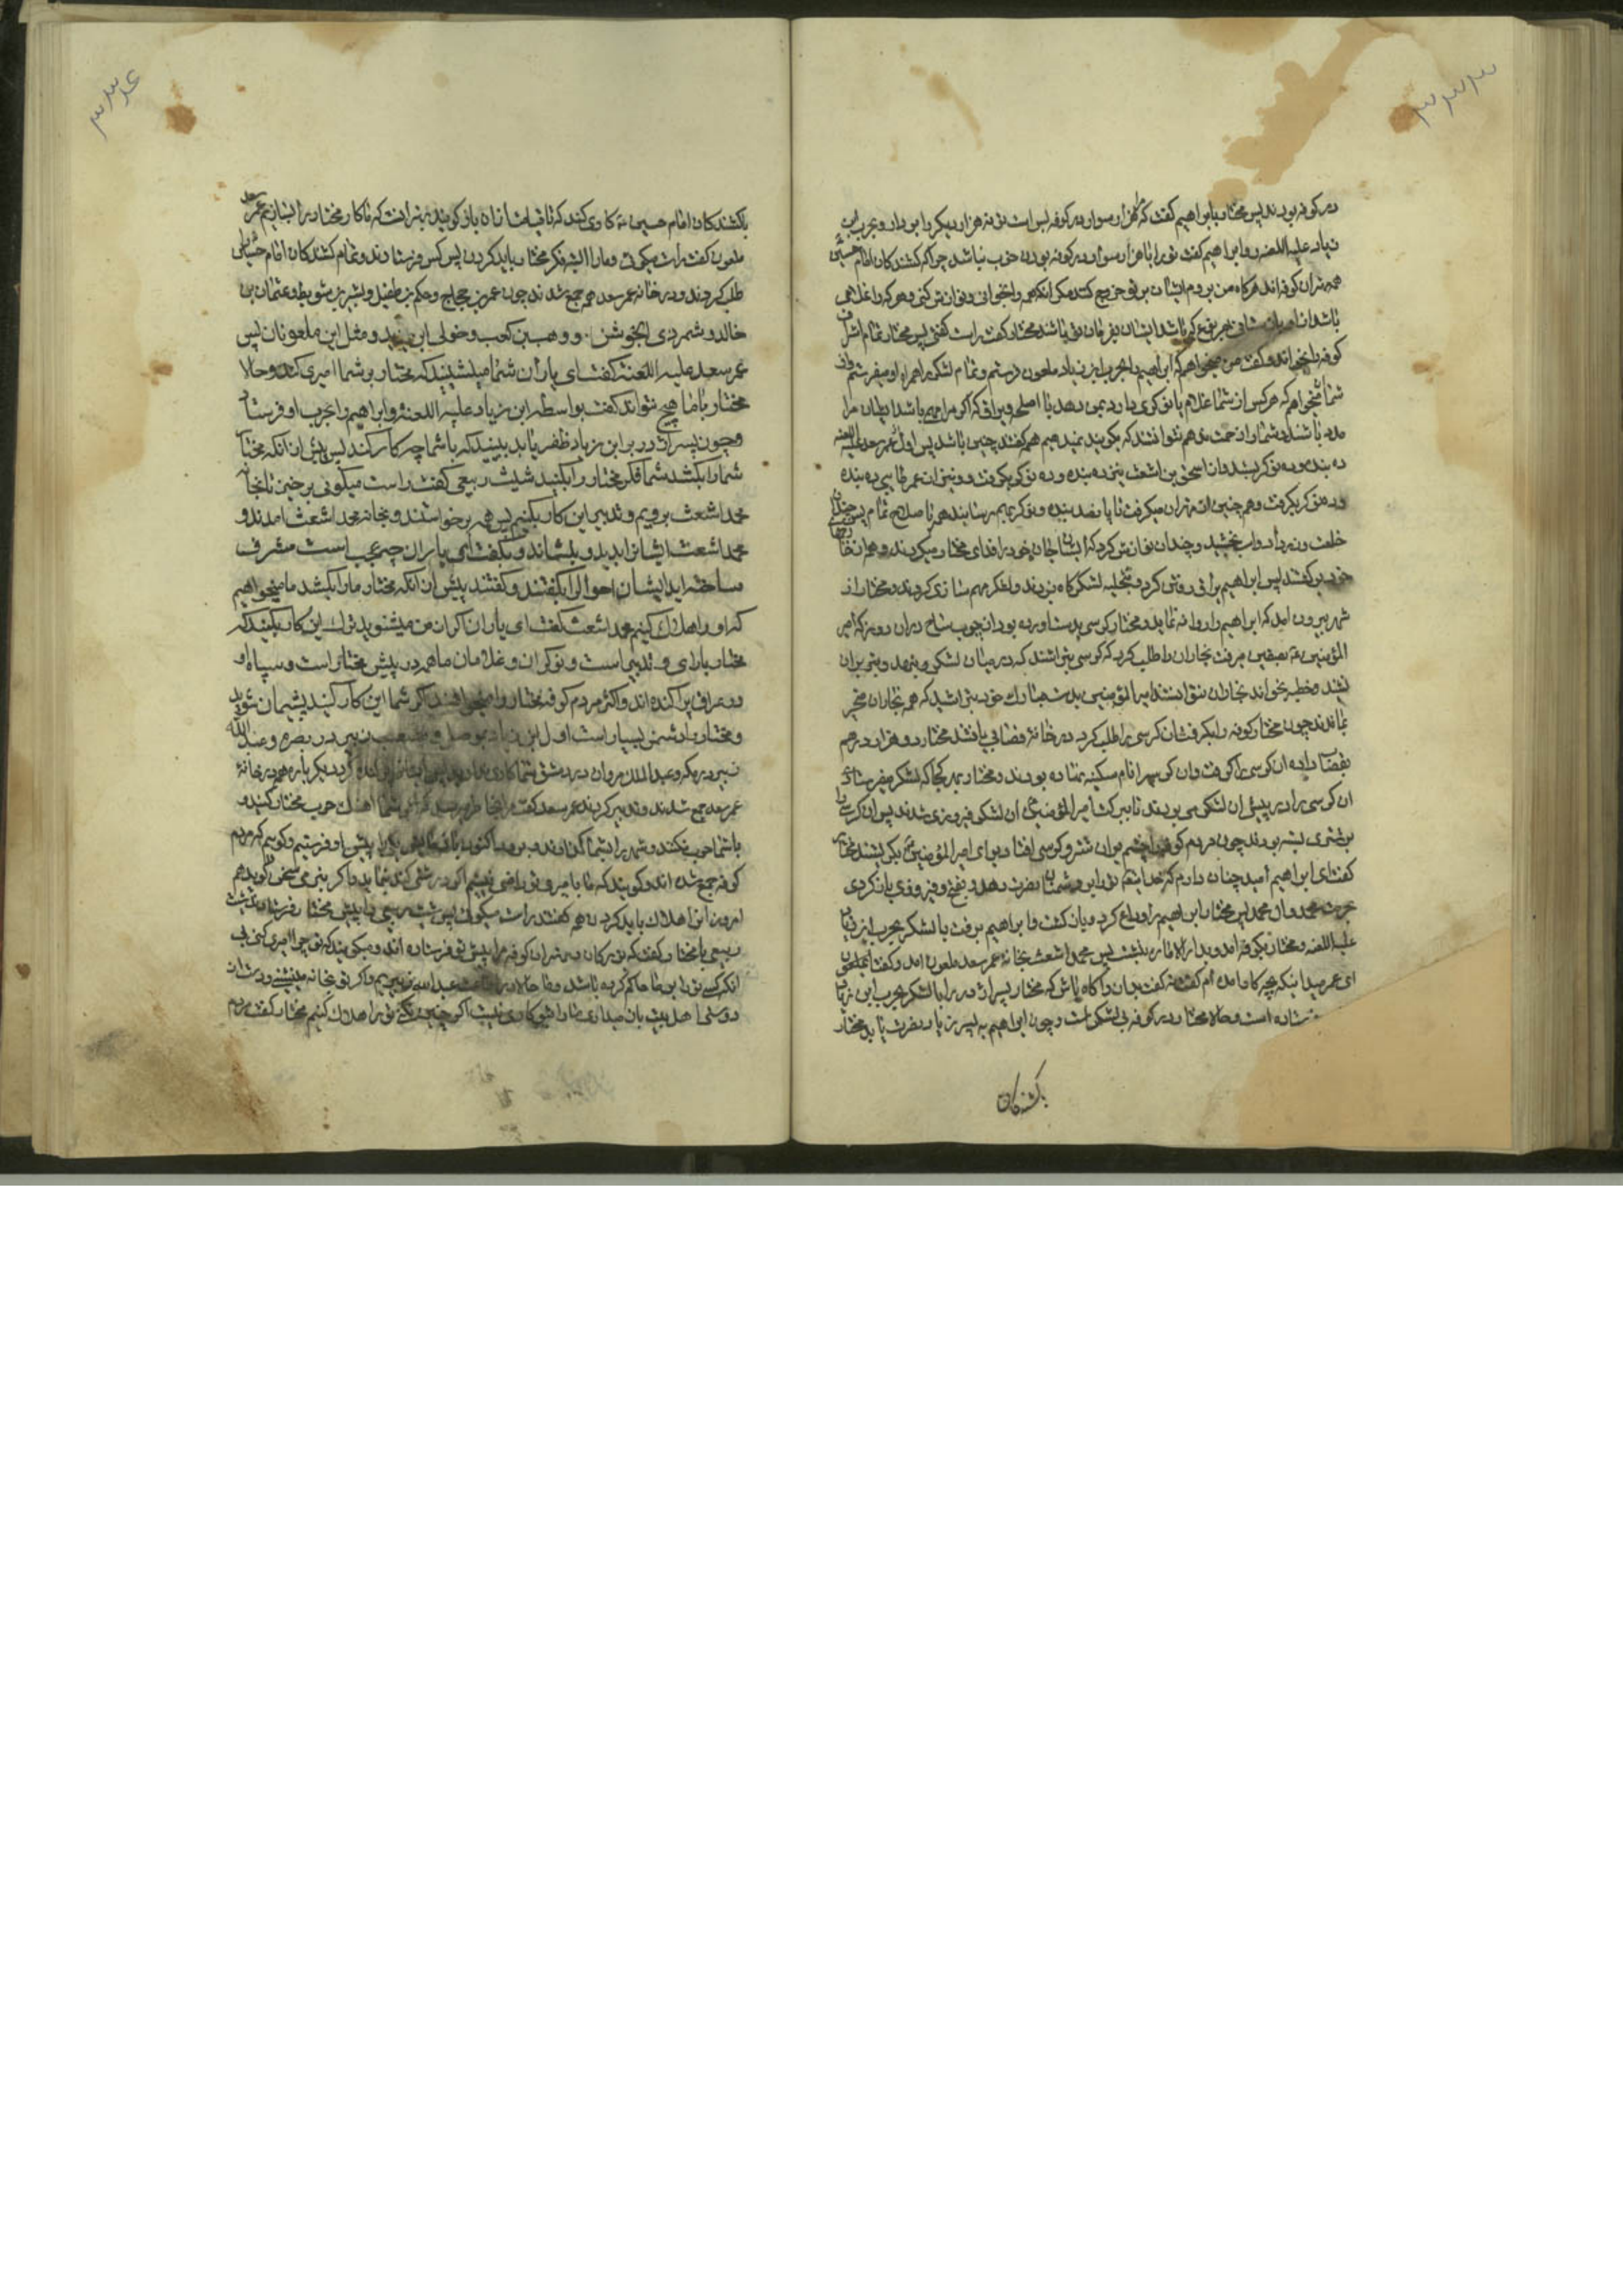 ۳۳۳
در کوفه بودند پس مختار با ابراهیم گفت که هزار سوار در کوفه بس است نه هزار دیگر را بردار و بحرب ابن
زیاد علیه اللعنه رو ابراهیم گفت ترا با هزار سوار در کوفه بودن خوب نباشد چرا که کشندکان امام حسین
همه در کوفه اند هرکاه من بروم ایشان بر تو خروج کنند مکر انکه همه را بخوانی و نوازش کنی و هر که را غلامی
باشد ایشان بفرمان تو باشند مختار گفت راست گفتی پس مختار تمام اشراف
کوفه را بخواند و گفت من میخواهم که ابراهیم را بحرب ابن زیاد ملعون فرستم و تمام لشکر همراه او میفرستم
شما میخواهم که هرکس از شما غلام یا نوکری دارد بمن دهد با اسلحه ویراق که اکر مرا مهم باشد ایشان مرا
مدد باشند و شما را زحمت همه گفتند چنین باشد پس اول عمر سعد علیه اللعنه
ده بنده و ده نوکر بستد و از اسحق بن اشعث پنج ده بنده و ده نوکر بگرفت و از عمر سی ده بنده
وده نوکر بگرفت و همچنین میگرفت تا پانصد بنده و نوکر بهم رسانیدند با سلاح تمام پس چندان
خلعت و زر و اسب بخشید و چندان نوازش کرد که ایشان جان خود را فدای مختار میکردند
پس ابراهیم یراق روشن کرد و بنخیله لشکرگاه بزدند و لشکر سازی کردند و مختار از
شهر بیرون امد که ابراهیم را روانه نماید و مختار کرسی بدست اورده بود از چوب ساج دران روز که امیر
المؤمنین بصفین میرفت نجاران را طلب کرد که کرسی بتراشند که در میان لشکر بنهد و بران
نشیند و خطبه بخواند نجاران نتوانستند امیرالمؤمنین بدست مبارک خود بتراشید که همه نجاران متحیر
بماندند چون مختار کوفه را بگرفت ان کرسی را طلب کرد در خانه قصابی یافتند مختار دو هزار درهم
بقصاب داده ان کرسی را گرفت و ان کرسی را نام سکینه نهاده بودند و مختار بهر کجا که لشکر میفرستاد
ان کرسی را در پیش ان لشکر می بردند تا ببرکت امیرالمؤمنین ان لشکر فیروزی شدند پس ان کرسی را
بر شتری بسته بودند چون مردم کوفه را چشم بران شتر و کرسی افتاد برای امیرالمؤمنین بگریستند مختار
گفت ای ابراهیم امید چنان دارم که خدا ترا بر دشمنان نصرت دهد و بفتح و فیروزی باز گردی
بحرمت محمد وال محمد پس مختار ابراهیم را وداع کرد و بازگشت و ابراهیم برفت با لشکر بحرب ابن زیاد
علیه اللعنه و مختار بکوفه امد و بدار الاماره بنشست پس محمد اشعث بخانه عمر سعد ملعون امد و گفت
ای عمر میدانی که بچه کار امده ام گفت نه گفت بدان و آگاه باش که مختار پسر اژدر را با لشکر بحرب ابن زیاد
فرستاده است و حالا مختار در کوفه بی لشکر است و چون ابراهیم به پسر زیاد نصرت یابد مختار
بکشندکان
۳۳۴
بکشندکان امام حسین کاری کند که تا قیامت ازان باز گویند بهتر انست که ما کار مختار را بسازیم عمر سعد
ملعون گفت راست میگوئی و ما را البته فکر مختار باید کردن پس کس فرستادند و تمام کشندکان امام حسین را
طلب کردند و در خانه عمر سعد همه جمع شدند چون عمر بن حجاج و حکم بن طفیل و بشر بن شویط و عثمان بن
خالد و شمر ذی الجوشن و وهب بن کعب و خولی ابن یزید و مثل این ملعونان پس
عمر سعد علیه اللعنه گفت ای یاران شما میپسندید که مختار بر شما امیری کند و حالا
مختار با ما هیچ نتواند گفت بواسطه ابن زیاد علیه اللعنه و ابراهیم را بحرب او فرستاد
و چون پسر اژدر بر ابن زیاد ظفر یابد ببینید که با شما چه کار کند پس پیش از انکه مختار
شما را بکشد شما فکر مختار را بکنید شیث ربیعی گفت راست میگوئی برخیز تا بخانه
محمد اشعث برویم و تدبیر این کار بکنیم پس همه برخواستند و بخانه محمد اشعث امدند و
محمد اشعث ایشانرا بدید و بنشاند و بگفت ای یاران چه عجب است مشرف
ساخته اید ایشان احوال را بگفتند و گفتند پیش از انکه مختار ما را بکشد ما میخواهیم
که او را هلاک کنیم محمد اشعث گفت ای یاران اگر از من میشنوید ترک این کار بکنید که
مختار با رای و تدبیر است و نوکران و غلامان ما همه در پیش مختار است و سپاه او
در عراق پراکنده اند و اکثر مردم کوفه مختار را میخواهند اگر شما این کار کنید پشیمان شوید
و مختار را دشمن بسیار است اول ابن زیاد در موصل و مصعب زبیر در بصره و عبدالله
زبیر در مکه و عبدالملک مروان در دمشق شما کاری مدارید پس دیگر باره همه در خانه
عمر سعد جمع شدند و تدبیر کردند عمر سعد گفت مرا بخاطر میرسد که اگر شما اهنک حرب مختار کنید و
با شما حرب کند و شهر را بشما گذارد و برود اکنون یکی را پیش او فرستیم و گوئیم که مردم
کوفه جمع شده اند و گویند که ما بامیری تو راضی نیستیم اگر درشتی کند نماید و اگر بنرمی سخن گوید هم
امروز او را هلاک باید کردن همه گفتند راست میگوئی پس شیث ربیعی را پیش مختار فرستادند شیث
ربیعی با مختار گفت که بزرکان و مهتران کوفه مرا پیش تو فرستاده اند و میگویند که تو چرا امیری کنی بی
انکه کسی ترا بر ما حاکم کرده باشد و ما حالا در اطاعت عبدالله زبیریم و اگر تو بخانه بنشینی و دست از
دوستی اهل بیت باز میداری ما را با تو کاری نیست اگر چنین نکنی ترا هلاک کنیم مختار گفت مردم